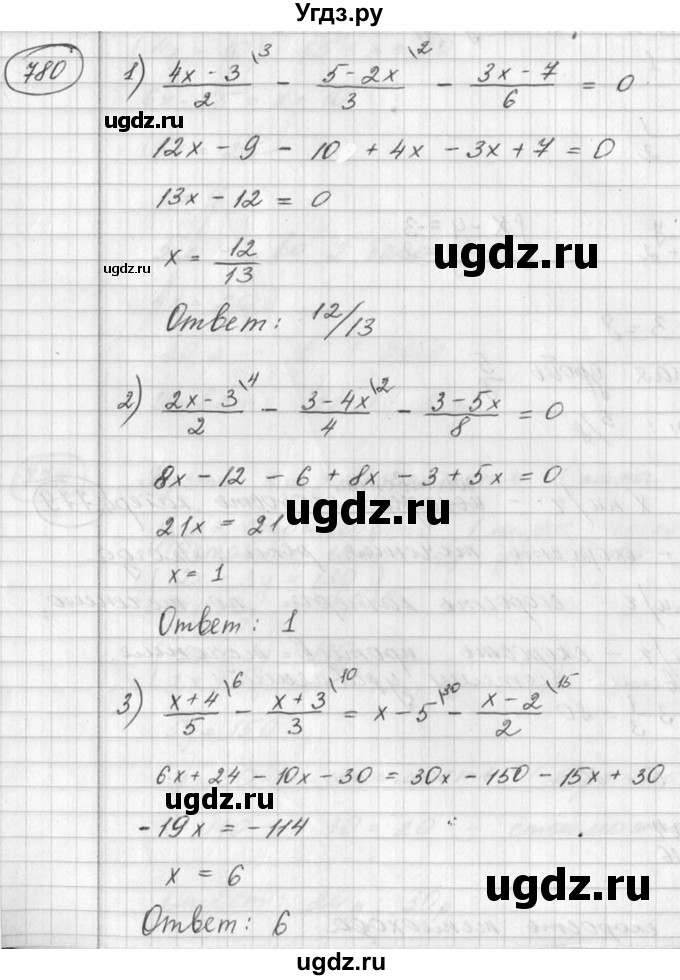 Угдз.ру
780
1) (4x - 3)/2 \3 - (5 - 2x)/3 \2 - (3x - 7)/6 = 0
ugdz.ru
12x - 9 - 10 + 4x - 3x + 7 = 0
ugdz.ru
13x - 12 = 0
ugdz.ru
x = 12/13
ugdz.ru
Ответ: 12/13
ugdz.ru
2) (2x - 3)/2 \4 - (3 - 4x)/4 \2 - (3 - 5x)/8 = 0
8x - 12 - 6 + 8x - 3 + 5x = 0
21x = 21
ugdz.ru
x = 1
Ответ: 1
3) (x + 4)/5 \6 - (x + 3)/3 \10 = x - 5 \30 - (x - 2)/2 \15
6x + 24 - 10x - 30 = 30x - 150 - 15x + 30
ugdz.ru
-19x = -114
x = 6
ugdz.ru
Ответ: 6